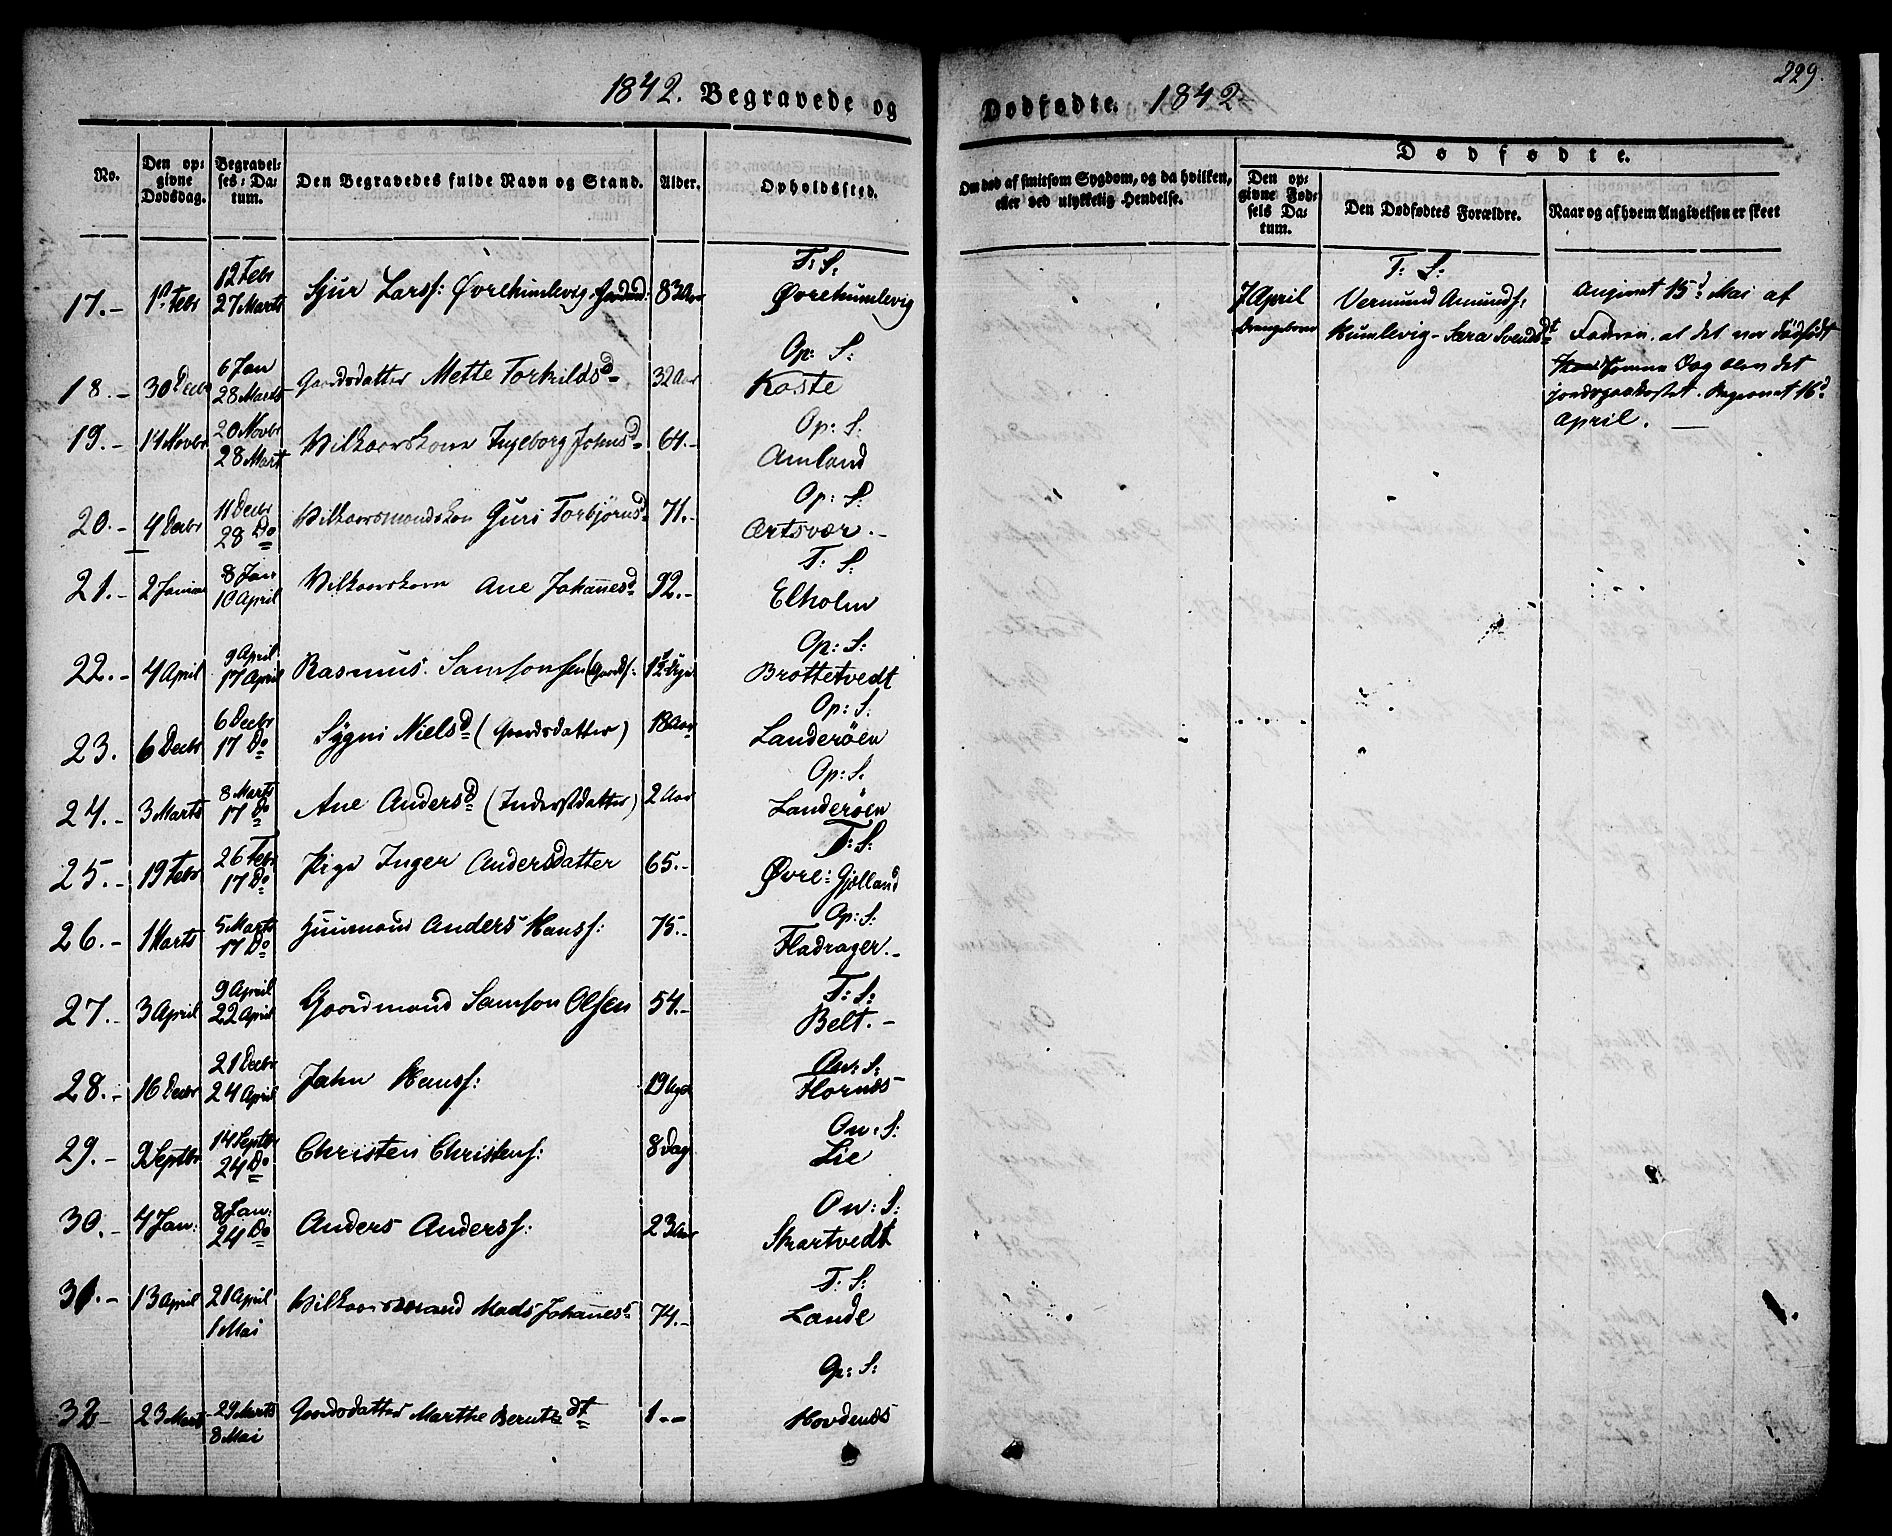 1842. Begravede og
No.
Den op=
givne
Dødsdag.
Begravel=
ses=Da=
tum.
Den Begravedes fulde Navn og Stand.
Alder.
Opholdssted.
17.- 1st Febr 12 Febr 27 Marts Sjur Larss: Øvrehumlevig 83 Aar T: S: Øvrehumlevig
18.- 30 Decbr 6 Jan 28 Marts Gaardsdatter Mette Torkildsd 32 Aar Op: S: Koste
19.- 14 Novbr 20 Novbr 28 Mart Vilkaarskone Ingeborg Johnsd 64.- Op: S: Amland
20.- 4 Decbr 11 Decbr 28 Do Vilkaarsmandskon Guri Torbjørnsd 71.- Op: S: Artsvær.-
21.- 2 Januar 8 Jan 10 April Vilkaarskone Ane Johannesd 92.- T: S: Elholm
22.- 4 April 9 April 17 April Rasmus Samsonsen (Gaards: Op: S: Brottetvedt
23. 6 Decbr 6 Decbr 17 Do Sygni Nielsd (Gaardsdatter) 18 Aar Op: S: Landerøen
24.- 3 Marts 8 Marts 17 Do Ane Andersd (Inderstdatter) 2 Aar Op: S: Landerøen
25.- 19 Febr 26 Febr 17 Do Pige Inger Andersdatter 65.- T: S: Øvre=Gjelland
26.- 1 Marts 5 Marts 17 Do Huusmand Anders Hanss: 75.- Op: S: Fladrager.-
27.- 3 April 9 April 22 April Gaardmand Samson Olsen 54.- T: S: Belt.-
28.- 16 Decbr 21 Decbr 24 April John Hanss: 19 Uger On: S: Hornes
29.- 9 Septbr 14 Septbr 24 Do Christen Christens: 8 Dag On: S: Lie
30.- 4 Jan: 8 Jan: 24 Do Anders Anderss: 23 Aar On: S: Skartvedt
31.- 13 April 21 April 1 Mai Vilkaarsmand Mads Johannes 74.- T: S: Lande
32- 23 Marts 29 Marts 8 Mai Gaardsdatter Marthe Berntsdt 1.- Op: S: Hovdenes
Dødfødte. 1842
229.
Om død af smitsom Sygdom, og da hvilken,
eller ved ulykkelig Hendelse.
Dødfødte.
Den op=
givne Fød=
sels Da=
tum.
Den Dødfødtes Forældre.
Naar og af hvem Angivelsen er skeet
7 April
Drengebarn
T: S:
Vermund Amunds:
Humlevig - Sara Svendsdt
Angivet 15d Mai af
Faderen, at det var dødfødt
samme Dag blev det
jordspaakastet. Begravet 16d
April.